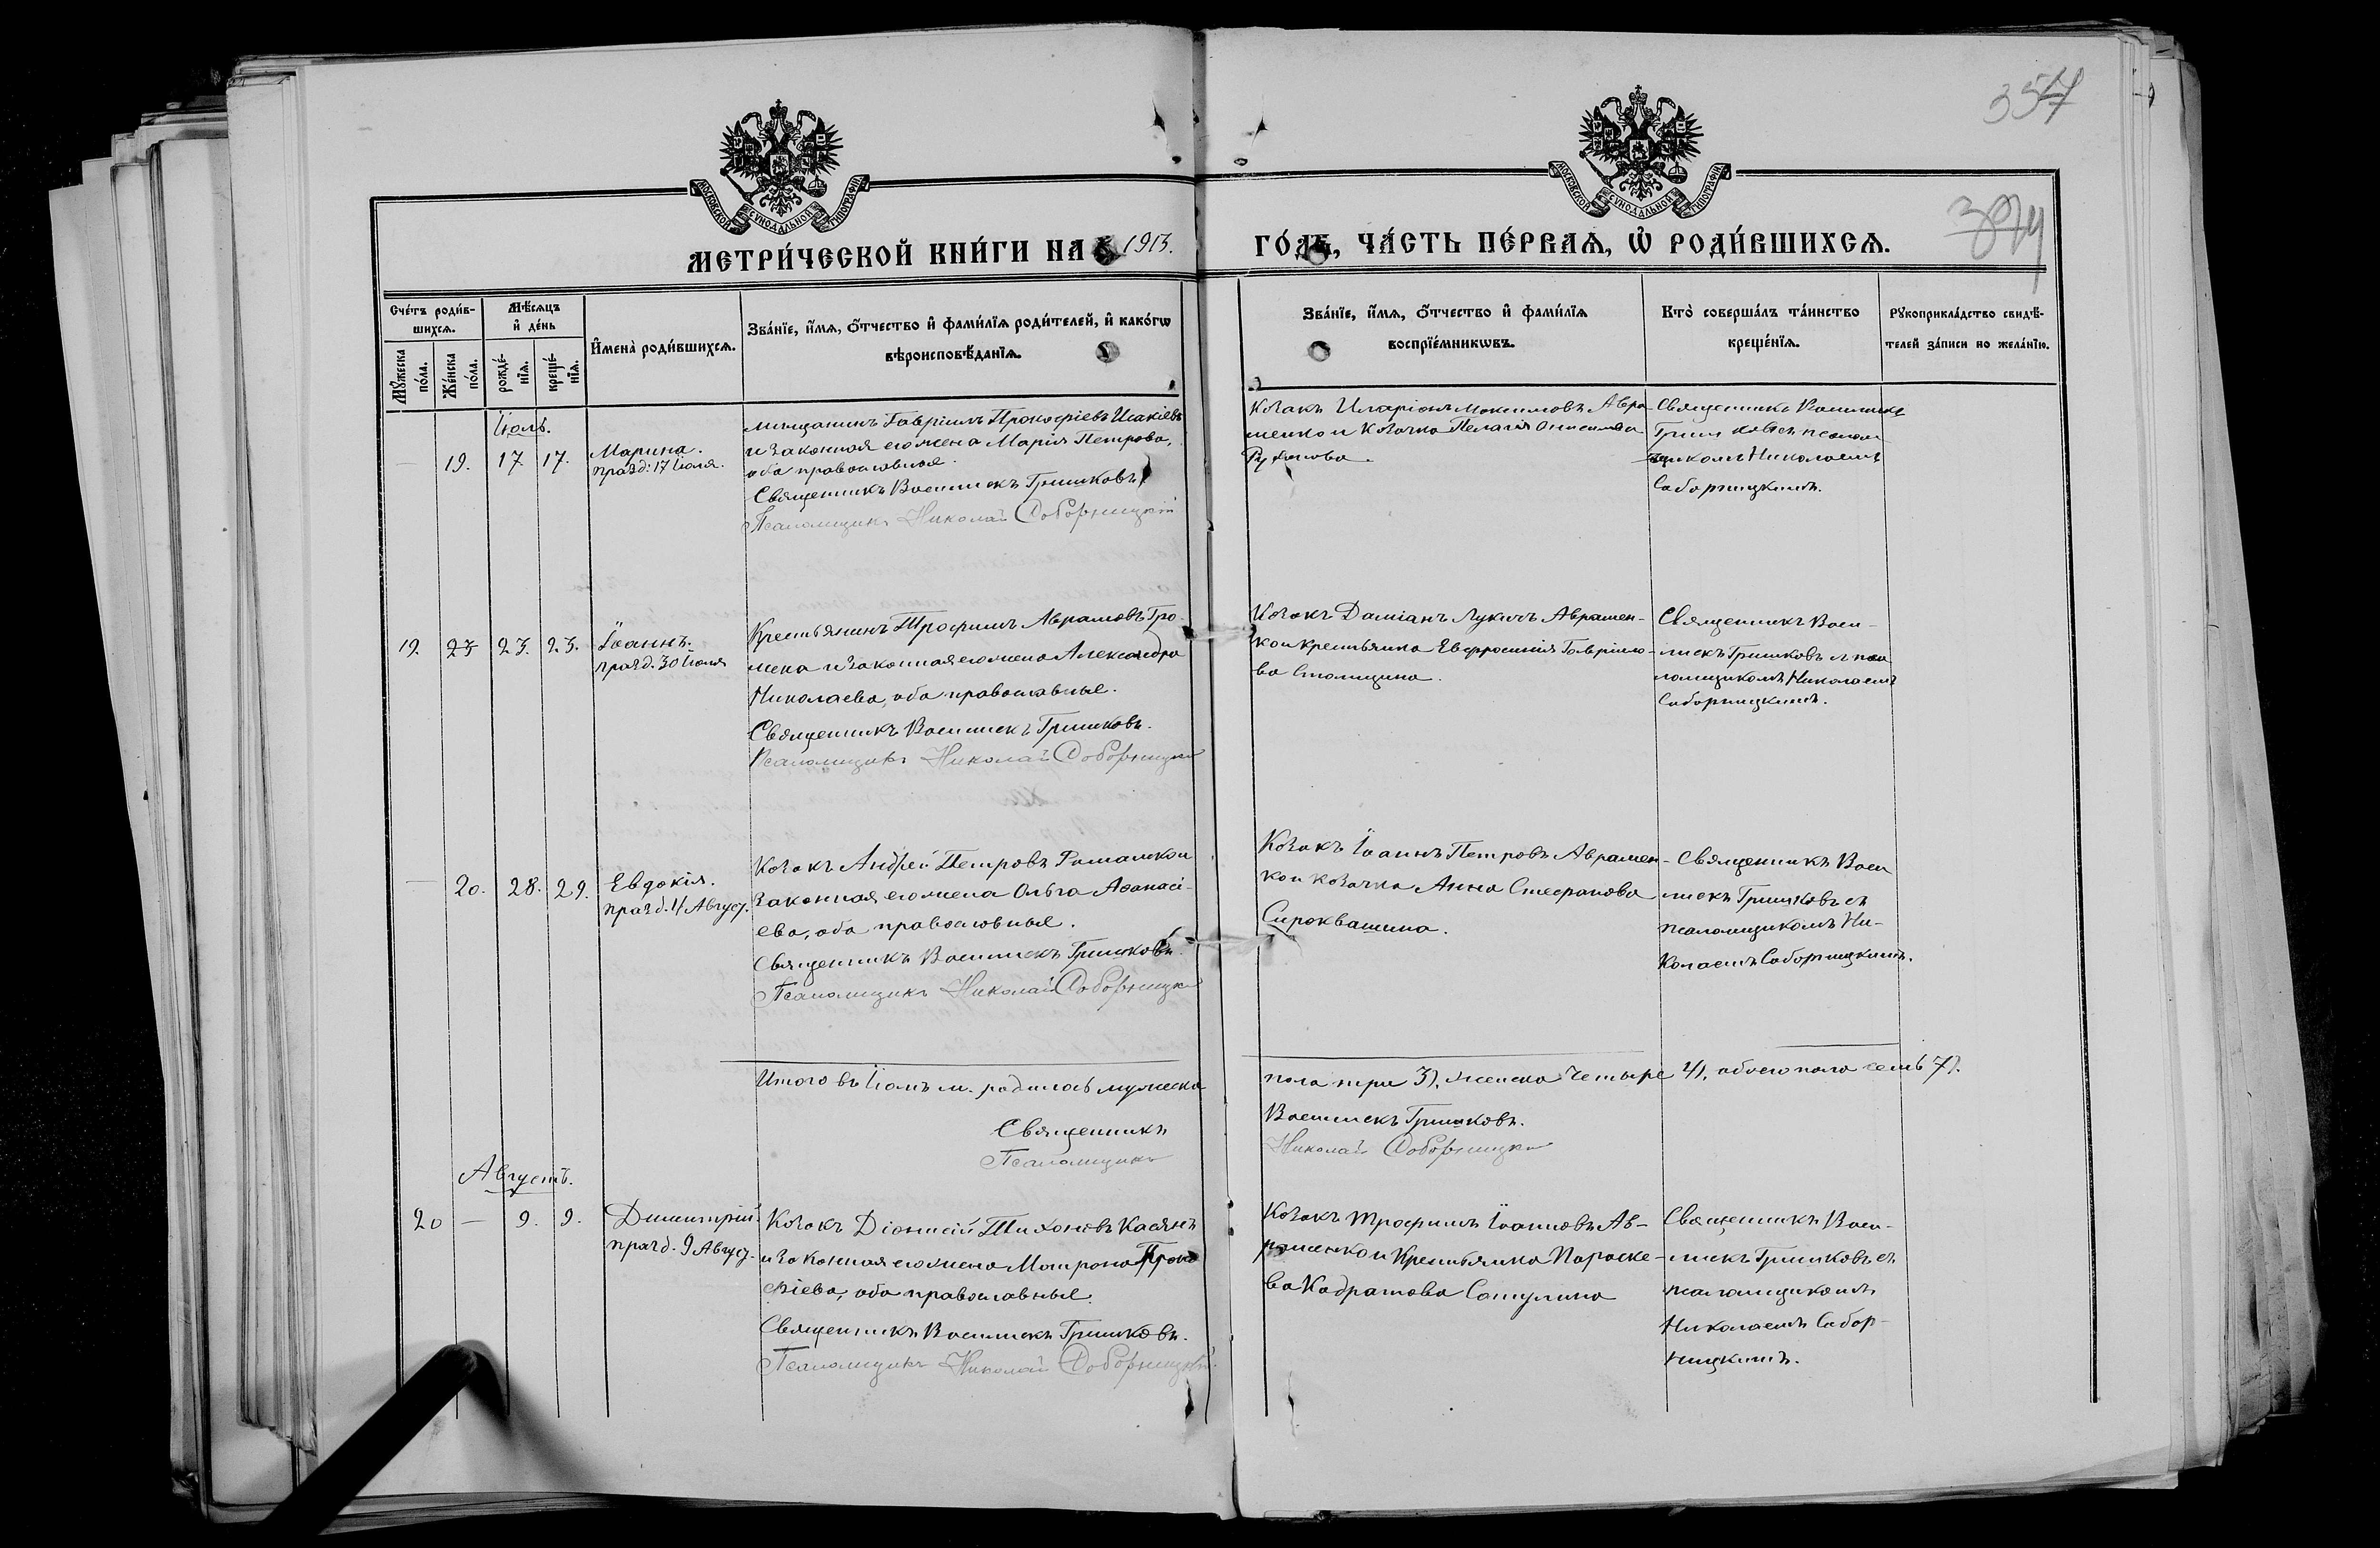 357
374
МОСКОВСКОЙ СУНОДАЛЬНОЙ ТИПОГРАФІИ
МОСКОВСКОЙ СУНОДАЛЬНОЙ ТИПОГРАФІИ
МЕТРИ́ЧЕСКОЙ КНИ́ГИ НА 1913.
ГО́ДЪ, ЧА́СТЬ ПЕ́РВАѦ, Ѡ҆ РОДИ́ВШИХСѦ.
Сче́тъ роди́в-
шихсѧ.
Мꙋ́жеска
по́ла.
Же́нска
по́ла.
Мѣ́сѧцъ
и҆ де́нь
рожде́-
нїѧ.
креще́-
нїѧ.
И҆мена̀ роди́вшихсѧ.
Зва́нїе, и҆́мѧ, ѻ҆́тчество и҆ фами́лїѧ роди́телей, и҆ како́гѡ
вѣроисповѣ́данїѧ.
Зва́нїе, и҆́мѧ, ѻ҆́тчество и҆ фами́лїѧ
воспрїе́мникѡвъ.
Кто̀ соверша́лъ та́инство
креще́нїѧ.
Рꙋкоприкла́дство свидѣ́-
телей за́писи по жела́нїю.
Іюль.
19. 17. 17.
Марина.
празд. 17 Іюля.
мѣщанинъ Гавріилъ Прокофіевъ Исакіевъ
и законная его жена Марія Петрова,
оба православные.
Священникъ Василискъ Гришковъ
Псаломщикъ Николай Соборницкій
Козакъ Иларіонъ Максимовъ Авра-
менко и козачка Пелагія Онисимова
Священникъ Василискъ
Гришковъ съ псалом-
щикомъ Николаемъ
Соборницкимъ.
19. 23 23. 23.
Іоаннъ.
празд. 30 Іюля
Крестьянинъ Трофимъ Аврамовъ Гро-
мека и законная его жена Александра
Николаева, оба православные.
Священникъ Василискъ Гришковъ.
Псаломщикъ Николай Соборницкій
Козакъ Даміанъ Лукичъ Аврамен-
ко и крестьянка Евфросинія Гавріило-
ва
Священникъ Васи-
лискъ Гришковъ съ пса
ломщикомъ Николаемъ
Соборницкимъ.
20. 28. 29.
Евдокія.
празд. 4 Август.
Козакъ Андрей Петровъ Романско и
законная его жена Ольга Аѳанасі-
ева, оба православные.
Священникъ Василискъ Гришковъ.
Псаломщикъ Николай Соборницкій
Козакъ Іоаннъ Петровъ Авramен-
ко и козачка Анна Стефанова
Сироквашина.
Священникъ Васи
лискъ Гришковъ съ
псаломщикомъ Ни-
колаемъ Соборницкимъ.
Итого въ Іюлѣ м. родилось мужска
пола три 3), женска четыре 4), обоего пола семь 7).
Священникъ
Василискъ Гришковъ.
Псаломщикъ
Николай Соборницкій
Августъ.
20 — 9. 9.
Димитрій.
празд. 9 Август.
Козакъ Діонисій Тихоновъ Касянъ
и законная его жена Матрона Проко
фіева, оба православные.
Священникъ Василискъ Гришковъ.
Псаломщикъ Николай Соборницкій.
Козакъ Трофимъ Іоанновъ Ав-
раменко и крестьянка Параске-
ва Кодратова Сатулина
Священникъ Васи-
лискъ Гришковъ съ
псаломщикомъ
Николаемъ Собор-
ницкимъ.